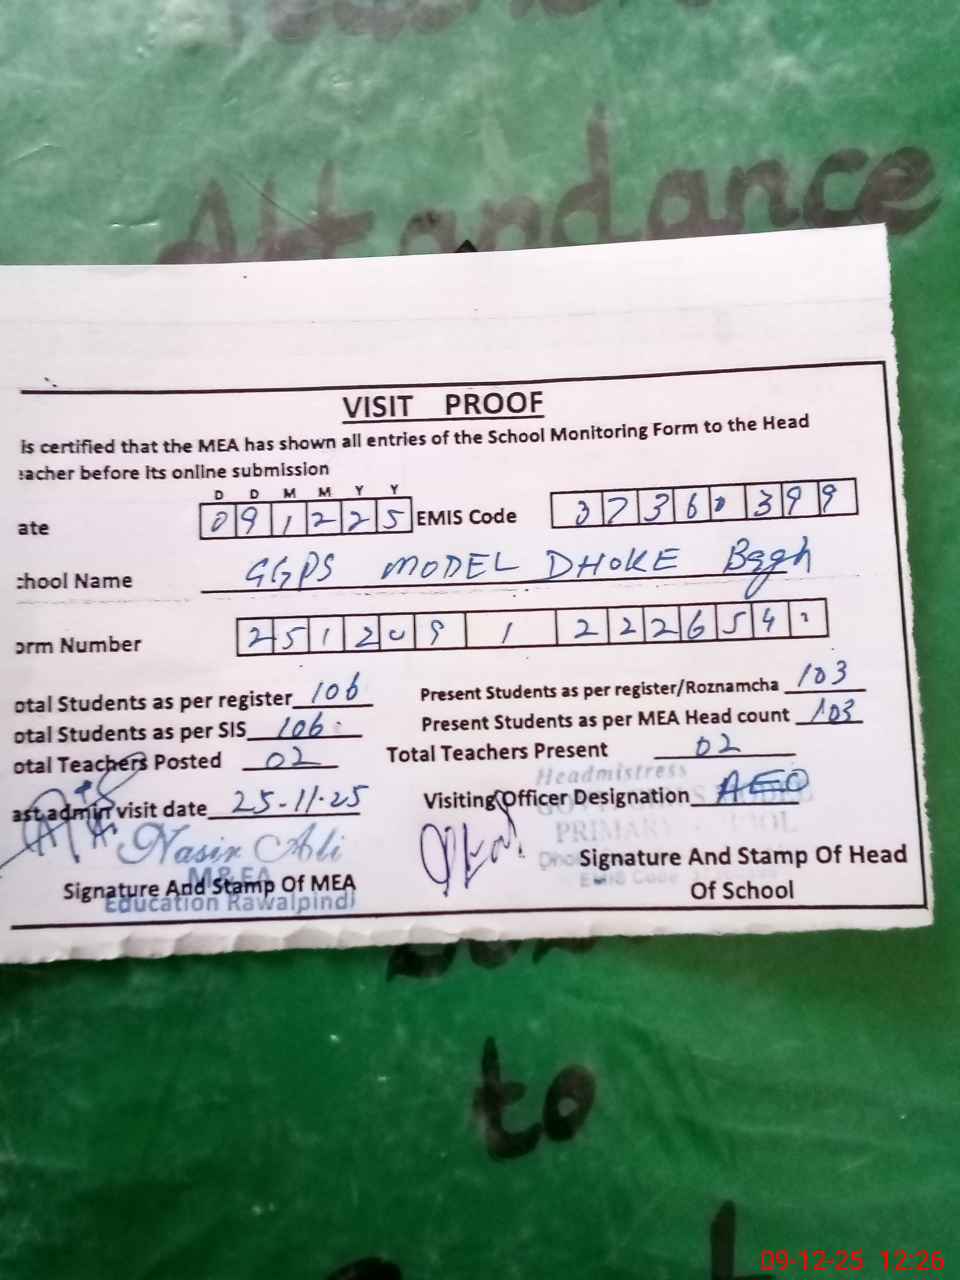 Attandance
VISIT PROOF
is certified that the MEA has shown all entries of the School Monitoring Form to the Head
eacher before its online submission
D D M M Y Y
ate 091225 EMIS Code 37360399
chool Name GGPS MODEL DHOKE Bagh
orm Number 251209 1 222654
otal Students as per register 106 Present Students as per register/Roznamcha 103
otal Students as per SIS 106 Present Students as per MEA Head count 103
otal Teachers Posted 02 Total Teachers Present 02
Headmistress
ast admin visit date 25-11-25 Visiting Officer Designation AEO
MODEL
PRIMARY SCHOOL
Nasir Ali
Signature And Stamp Of Head
M&EA
Signature And Stamp Of MEA
EMIS Code
Of School
Education Rawalpindi
to
09-12-25 12:26